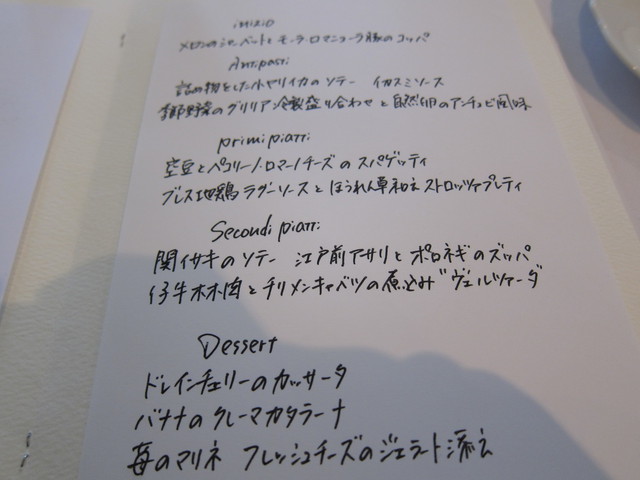 inizio
メロンのシャーベットとモーラ・ロマニョーラ豚のコッパ
Antipasti
詰め物をした小ヤリイカのソテー イカスミソース
季節野菜のグリリアン冷製盛り合わせと自然卵のアンチョビ風味
primi piatti
空豆とペコリーノ・ロマーノチーズのスパゲッティ
ブレス地鶏ラグーソースとほうれん草和え ストロッツァプレティ
Secondi piatti
関イサキのソテー 江戸前アサリとポロネギのズッパ
仔牛 と チリメンキャベツの煮込み"ヴェルツァーダ
Dessert
ドレインチェリーのカッサータ
バナナのクレーマカタラーナ
苺のマリネ フレッシュチーズのジェラート添え